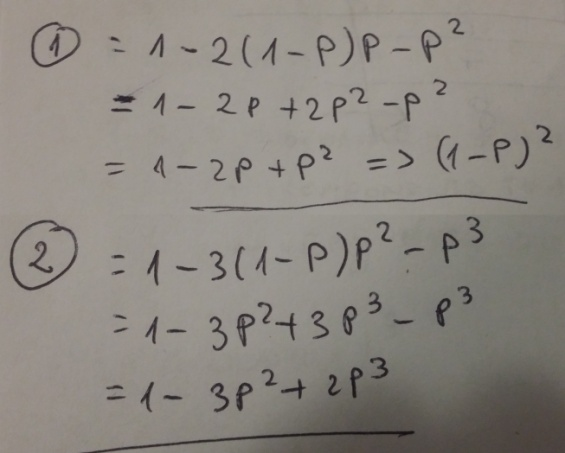 ① = 1 - 2(1-P)P - P²
= 1 - 2P + 2P² - P²
= 1 - 2P + P² => (1-P)²
② = 1 - 3(1-P)P² - P³
= 1 - 3P² + 3P³ - P³
= 1 - 3P² + 2P³